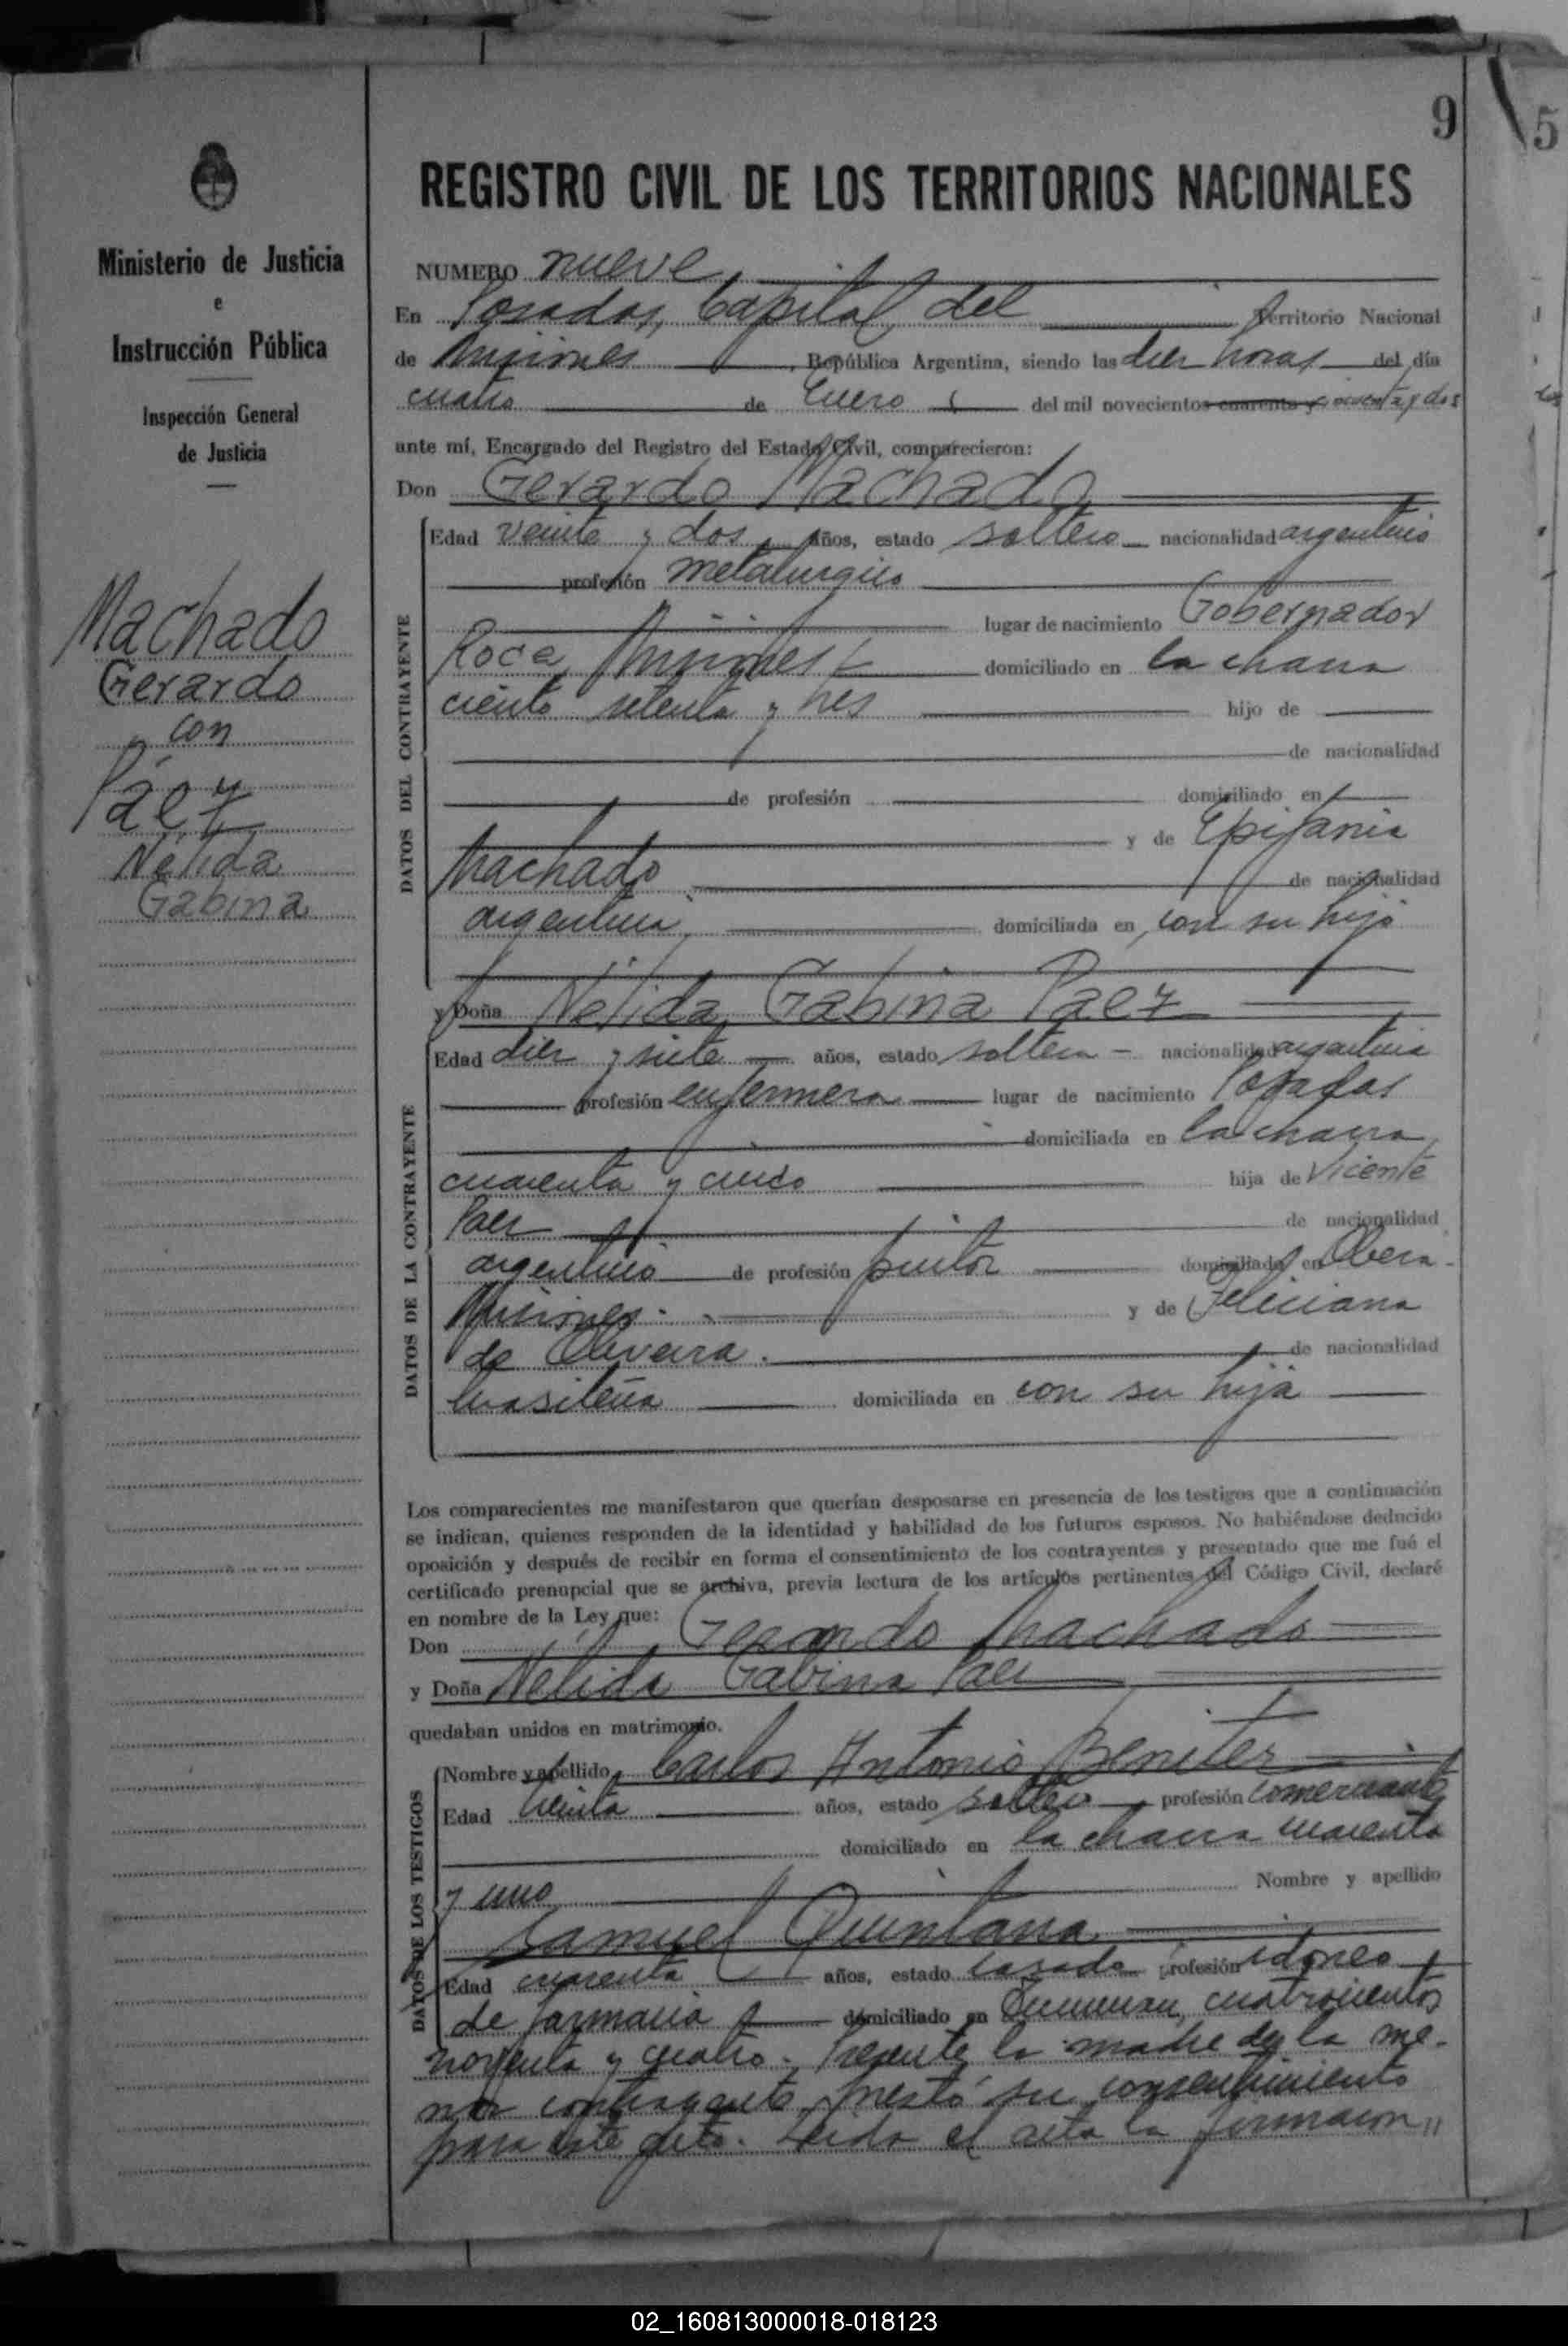 9
5
Ministerio de Justicia
e
Instrucción Pública
Inspección General
de Justicia
Machado
Gerardo
con
Páez
Nélida
Gabina
REGISTRO CIVIL DE LOS TERRITORIOS NACIONALES
NUMERO nueve
En Posadas, Capital del Territorio Nacional
de Misiones, República Argentina, siendo las diez horas del día
cuatro de Enero del mil novecientos cuarenta y cincuenta y dos
ante mí, Encargado del Registro del Estado Civil, comparecieron:
Don Gerardo Machado
DATOS DEL CONTRAYENTE
Edad veinte y dos años, estado soltero nacionalidad argentino
profesión metalurgico
lugar de nacimiento Gobernador
Roca, Misiones domiciliado en la chacra
ciento setenta y tres hijo de
de nacionalidad
de profesión domiciliado en
y de Epifania
Machado de nacionalidad
argentina, domiciliada en con su hijo
y Doña Nélida Gabina Paez
DATOS DE LA CONTRAYENTE
Edad diez y siete años, estado soltera nacionalidad argentina
profesión enfermera lugar de nacimiento Posadas
domiciliada en la chacra
cuarenta y cinco hija de Vicente
Paez de nacionalidad
argentino de profesión pintor domiciliado en Obera-
Misiones. y de Feliciana
de Oliveira. de nacionalidad
brasileña domiciliada en con su hija
Los comparecientes me manifestaron que querían desposarse en presencia de los testigos que a continuación
se indican, quienes responden de la identidad y habilidad de los futuros esposos. No habiéndose deducido
oposición y después de recibir en forma el consentimiento de los contrayentes y presentado que me fué el
certificado prenupcial que se archiva, previa lectura de los artículos pertinentes del Código Civil, declaré
en nombre de la Ley que:
Don Gerardo Machado
y Doña Nélida Gabina Paez
quedaban unidos en matrimonio.
DATOS DE LOS TESTIGOS
Nombre y apellido Carlos Antonio Benitez
Edad treinta años, estado soltero profesión comerciante
domiciliado en la chacra cuarenta
y uno Nombre y apellido
Samuel Quintana
Edad cuarenta años, estado casado profesión idoneo
de farmacia domiciliado en Tucuman, cuatrocientos
noventa y cuatro. Presente la madre de la me-
nor contrayente, prestó su consentimiento
para este acto. Leida el acta la firmaron
02_160813000018-018123